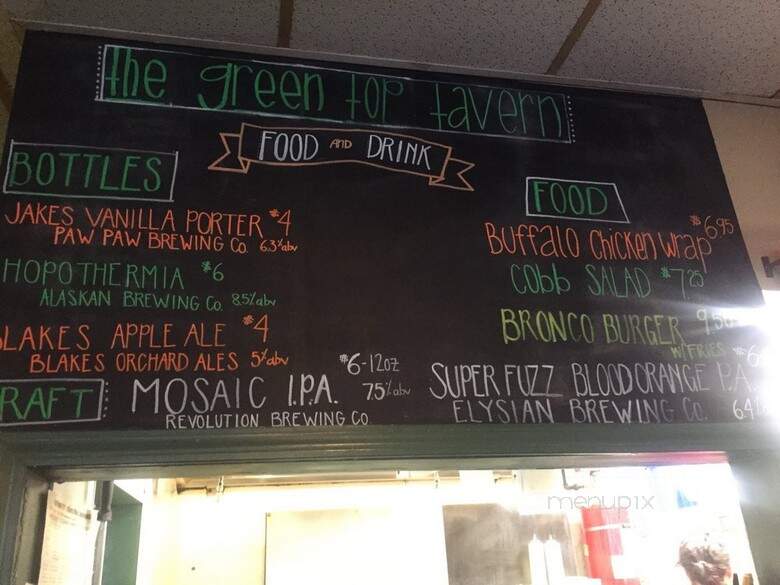 the green top tavern
FOOD AND DRINK
BOTTLES
JAKES VANILLA PORTER $4
PAW PAW BREWING Co. 6.3%abv
HOPOTHERMIA $6
ALASKAN BREWING Co. 8.5%abv
LAKES APPLE ALE $4
BLAKES ORCHARD ALES 5%abv
FOOD
Buffalo Chicken Wrap $6.95
Cobb SALAD $7.25
BRONCO BURGER 9.50
W/FRIES
RAFT
MOSAIC I.P.A. $6-12oz
7.5%abv
REVOLUTION BREWING CO
SUPER FUZZ BLOOD ORANGE P.A. $6
ELYSIAN BREWING Co. 6.4
menupix